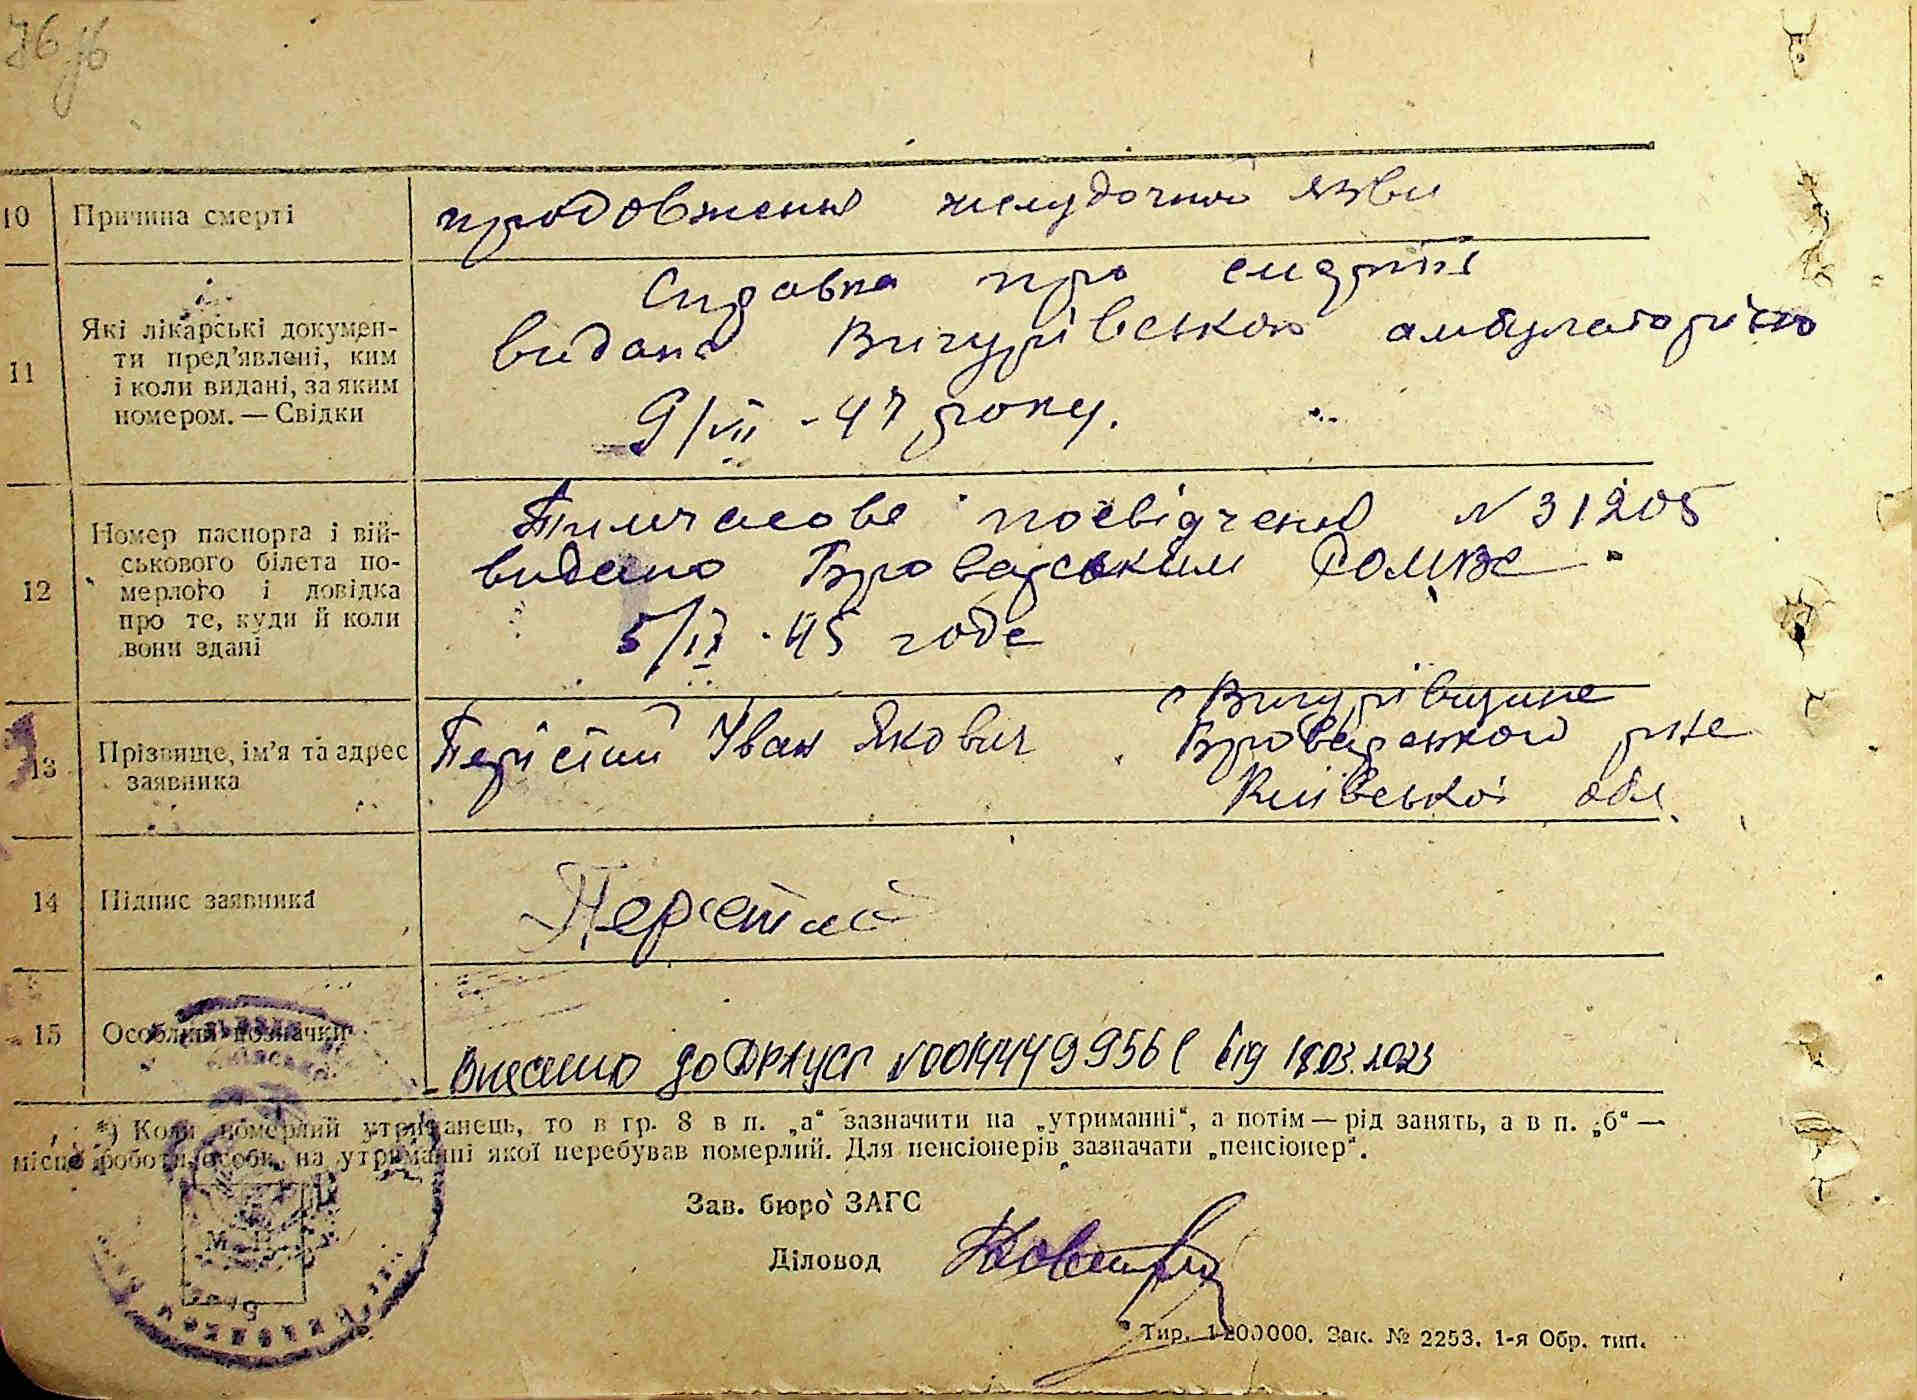 10 Причина смерті продовження желудочної язви
Справка про смерть
11 Які лікарські докумен-
ти пред’явлені, ким
і коли видані, за яким
номером. — Свідки
видана Вигурівською амбулаторією
9/VII - 47 року.
12 Номер паспорта і вій-
ськового білета по-
мерлого і довідка
про те, куди й коли
вони здані
Тимчасове посвідчення N 31205
видано Броварським РОМВС
5/IX - 45 годе
13 Прізвище, ім’я та адрес
заявника
Перістий Іван Якович
с Вигурівщине
Броварського р-не
Київської обл.
14 Підпис заявника Перістий
15 Особливі позначки
Внесено до ДРАЦСГ N00144499561 від 18.03.2023
*) Коли померлий утриманець, то в гр. 8 в п. „а“ зазначити на „утриманні“, а потім — рід занять, а в п. „б“ —
місце роботи особи, на утриманні якої перебував померлий. Для пенсіонерів зазначати „пенсіонер“.
Зав. бюро ЗАГС
Діловод
М. П.
Тир. 1200000. Зак. № 2253. 1-я Обр. тип.